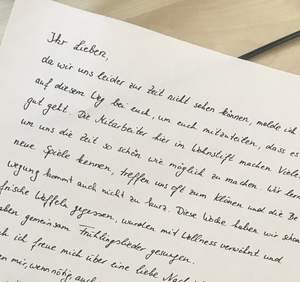 Ihr Lieben,
da wir uns leider zur Zeit nicht sehen können, melde ich
auf diesem Weg bei euch, um euch mitzuteilen, dass es
gut geht. Die Mitarbeiter hier im Wohnstift machen Vieles
um uns die Zeit so schön wie möglich zu machen. Wir lern
neue Spiele kennen, treffen uns oft zum Klönen und die Be
wegung kommt auch nicht zu kurz. Diese Woche haben wir schon
frische Waffeln gegessen, wurden mit Wellness verwöhnt und
aben gemeinsam Frühlingslieder gesungen.
ch ich freue mich über eine liebe Nach
en mir, wenn nötig, auch